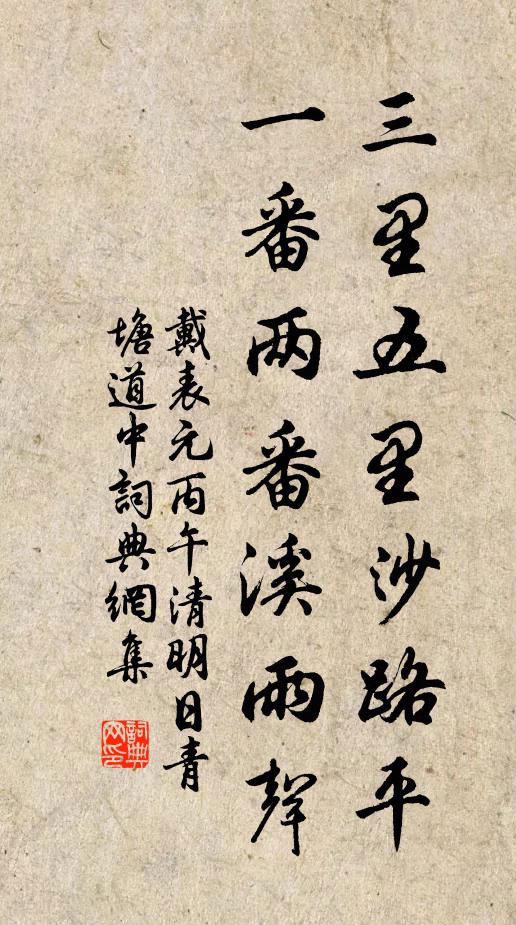 三里五里沙路平
一番两番溪雨声
戴表元丙午清明日青
塘道中詞典網集
詞典网印